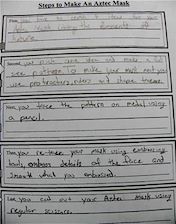 Steps to Make An Aztec Mask
First, you have to sketch 4 ideas for your
Aztec Mask using the elements of
Second, you pick one idea and make a full
size pattern to make your mask and you
use protractors, rulers and shape tracers.
Next, you trace the pattern on metal using
a pencil.
Then, you re-trace your mask using embossing
tools, emboss details of the face and
smooth what you embossed.
Last, you cut out your Aztec Mask using
regular scissors.